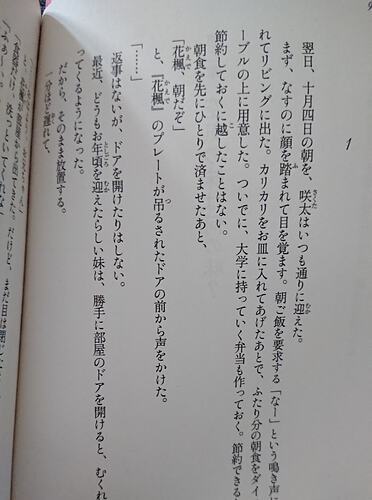 1
翌日、十月四日の朝を、咲太はいつも通りに迎えた。
まず、なすのに顔を踏まれて目を覚ます。朝ご飯を要求する「なー」という鳴き声に
れてリビングに出た。カリカリをお皿に入れてあげたあとで、ふたり分の朝食をダイ
ーブルの上に用意した。ついでに、大学に持っていく弁当も作っておく。節約できる
節約しておくに越したことはない。
朝食を先にひとりで済ませたあと、
「花楓、朝だぞ」
と、『花楓』のプレートが吊るされたドアの前から声をかけた。
「……」
返事はないが、ドアを開けたりはしない。
最近、どうもお年頃を迎えたらしい妹は、勝手に部屋のドアを開けると、むくれ
ってくるようになった。
だから、そのまま放置する。
一分ほど遅れて、